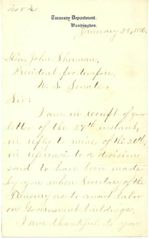 Treasury Department.
Washington.
January 29, 188
Hon. John Sherman,
President pro tempore,
U.S. Senate.
Sir:
I am in receipt of your
letter of the 27th instant,
in reply to mine of the 26th,
in reference to a decision
said to have been made
by you when Secretary of the
Treasury as to convict labor
on Government buildings.
I am thankful to you